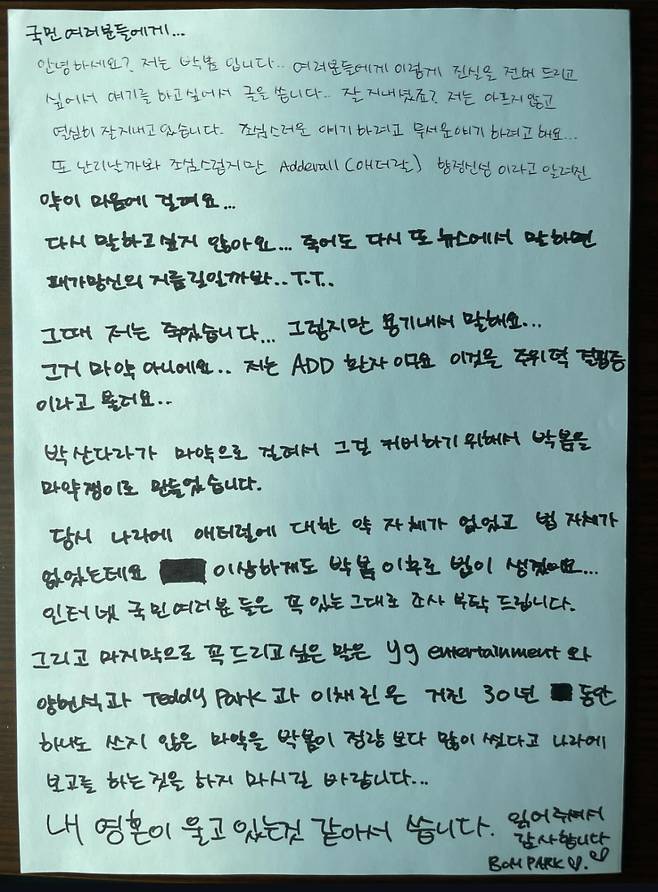 국민 여러분들에게...
안녕하세요? 저는 박봄 입니다.. 여러분들에게 이렇게 진실을 전해 드리고
싶어서 얘기를 하고싶어서 글을 씁니다.. 잘 지내셨죠? 저는 아프지 않고
열심히 잘지내고 있습니다. 조심스러운 얘기 하려고 무서운 얘기 하려고 해요...
또 난리날까봐 조심스럽지만 Adderall (애더럴) 향정신성 이라고 알려진
약이 마음에 걸려요...
다시 말하고싶지 않아요... 죽어도 다시 또 뉴스에서 말하면
패가망신의 지름길일까봐..T.T..
그때 저는 죽었습니다... 그렇지만 용기내서 말해요...
그거 마약 아니에요.. 저는 ADD 환자 이구요 이것을 주위력 결핍증
이라고 불러요..
박산다라가 마약으로 걸려서 그걸 커버하기 위해서 박봄을
마약쟁이로 만들었습니다.
당시 나라에 애터럴에 대한 약 자체가 없었고 법 자체가
없었는데요 이상하게도 박봄 이후로 법이 생겼어요...
인터넷 국민여러분 들은 꼭 있는그대로 조사 부탁 드립니다.
그리고 마지막으로 꼭 드리고 싶은 말은 yg entertainment 와
양현석과 Teddy Park 과 이채린 은 거진 30년 동안
하나도 쓰지 않은 마약을 박봄이 정량 보다 많이 썼다고 나라에
보고를 하는것을 하지 마시길 바랍니다...
내 영혼이 울고 있는것 같아서 씁니다. 읽어주셔서
감사합니다
BOM PARK♡.♡